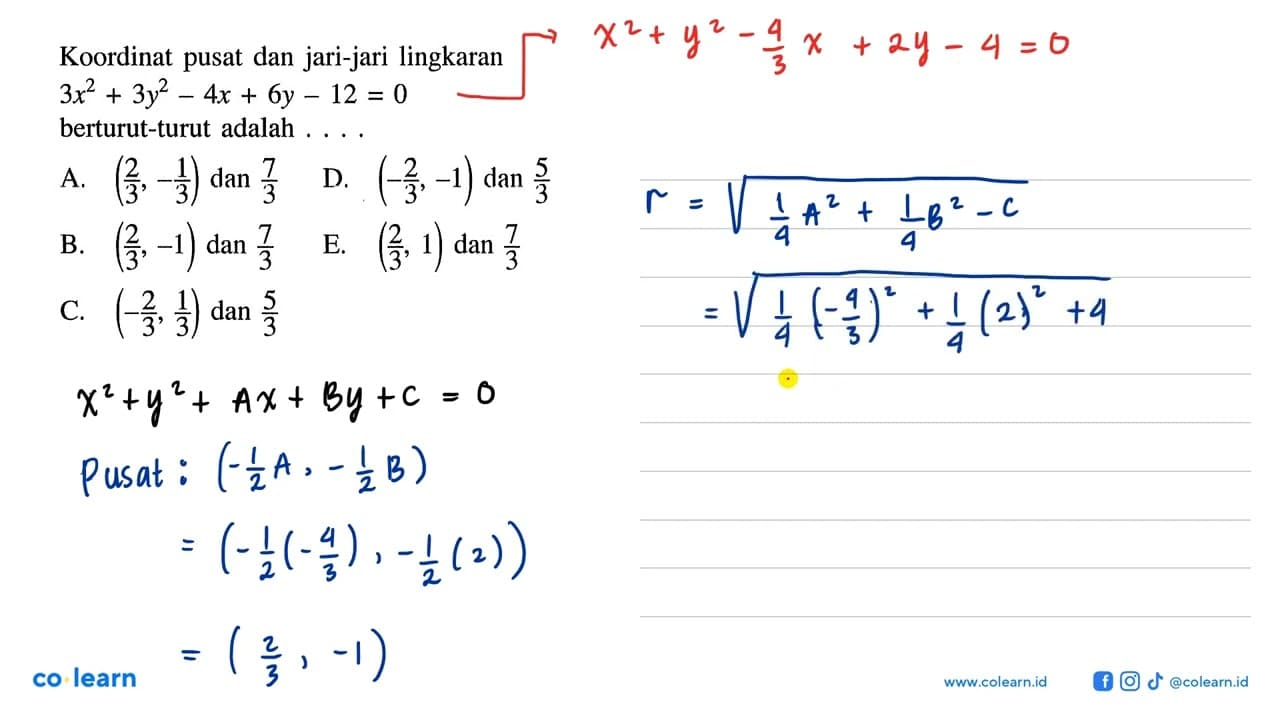 Koordinat pusat dan jari-jari lingkaran
3x² + 3y² – 4x + 6y – 12 = 0
berturut-turut adalah . . . .
A. (2/3, –1/3) dan 7/3 D. (–2/3, –1) dan 5/3
B. (2/3, –1) dan 7/3 E. (2/3, 1) dan 7/3
C. (–2/3, 1/3) dan 5/3
x² + y² + Ax + By + C = 0
Pusat : (-1/2 A, -1/2 B)
= (-1/2 (-4/3), -1/2 (2))
= (2/3, -1)
x² + y² - 4/3 x + 2y - 4 = 0
r = √(1/4 A² + 1/4 B² - C)
= √(1/4 (-4/3)² + 1/4 (2)² + 4)
co learn
www.colearn.id @colearn.id